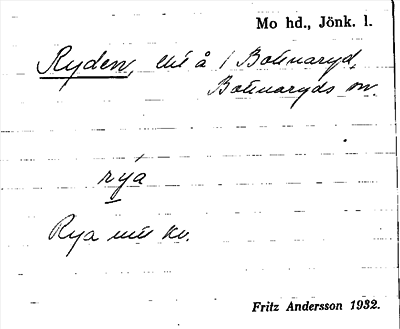 Mo hd., Jönk. l.
Ryden, litt å 1 Bottnaryd,
Bottnaryds sn.
rya
Rya
Fritz Andersson 1932.